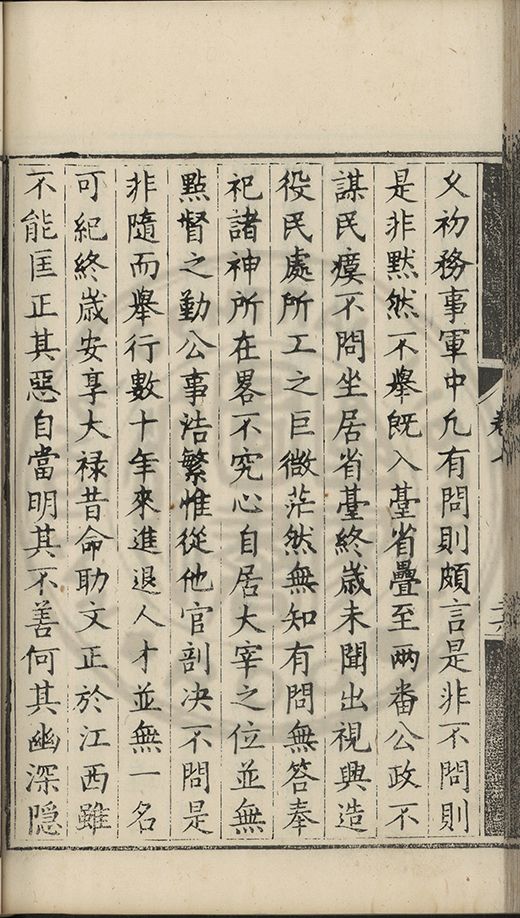 父初務事軍中凢有問則頗言是非不問則
是非黙然不舉既入臺省疊至兩畨公政不
謀民瘼不問坐居省臺終歳未聞出視興造
役民處所工之巨微茫然無知有問無答奉
祀諸神所在畧不究心自居大宰之位並無
㸃督之勤公事浩繁惟從他官剖决不問是
非隨而舉行數十年來進退人才並無一名
可紀終歳安享大禄昔命助文正於江西雖
不能匡正其惡自當明其不善何其幽深隠